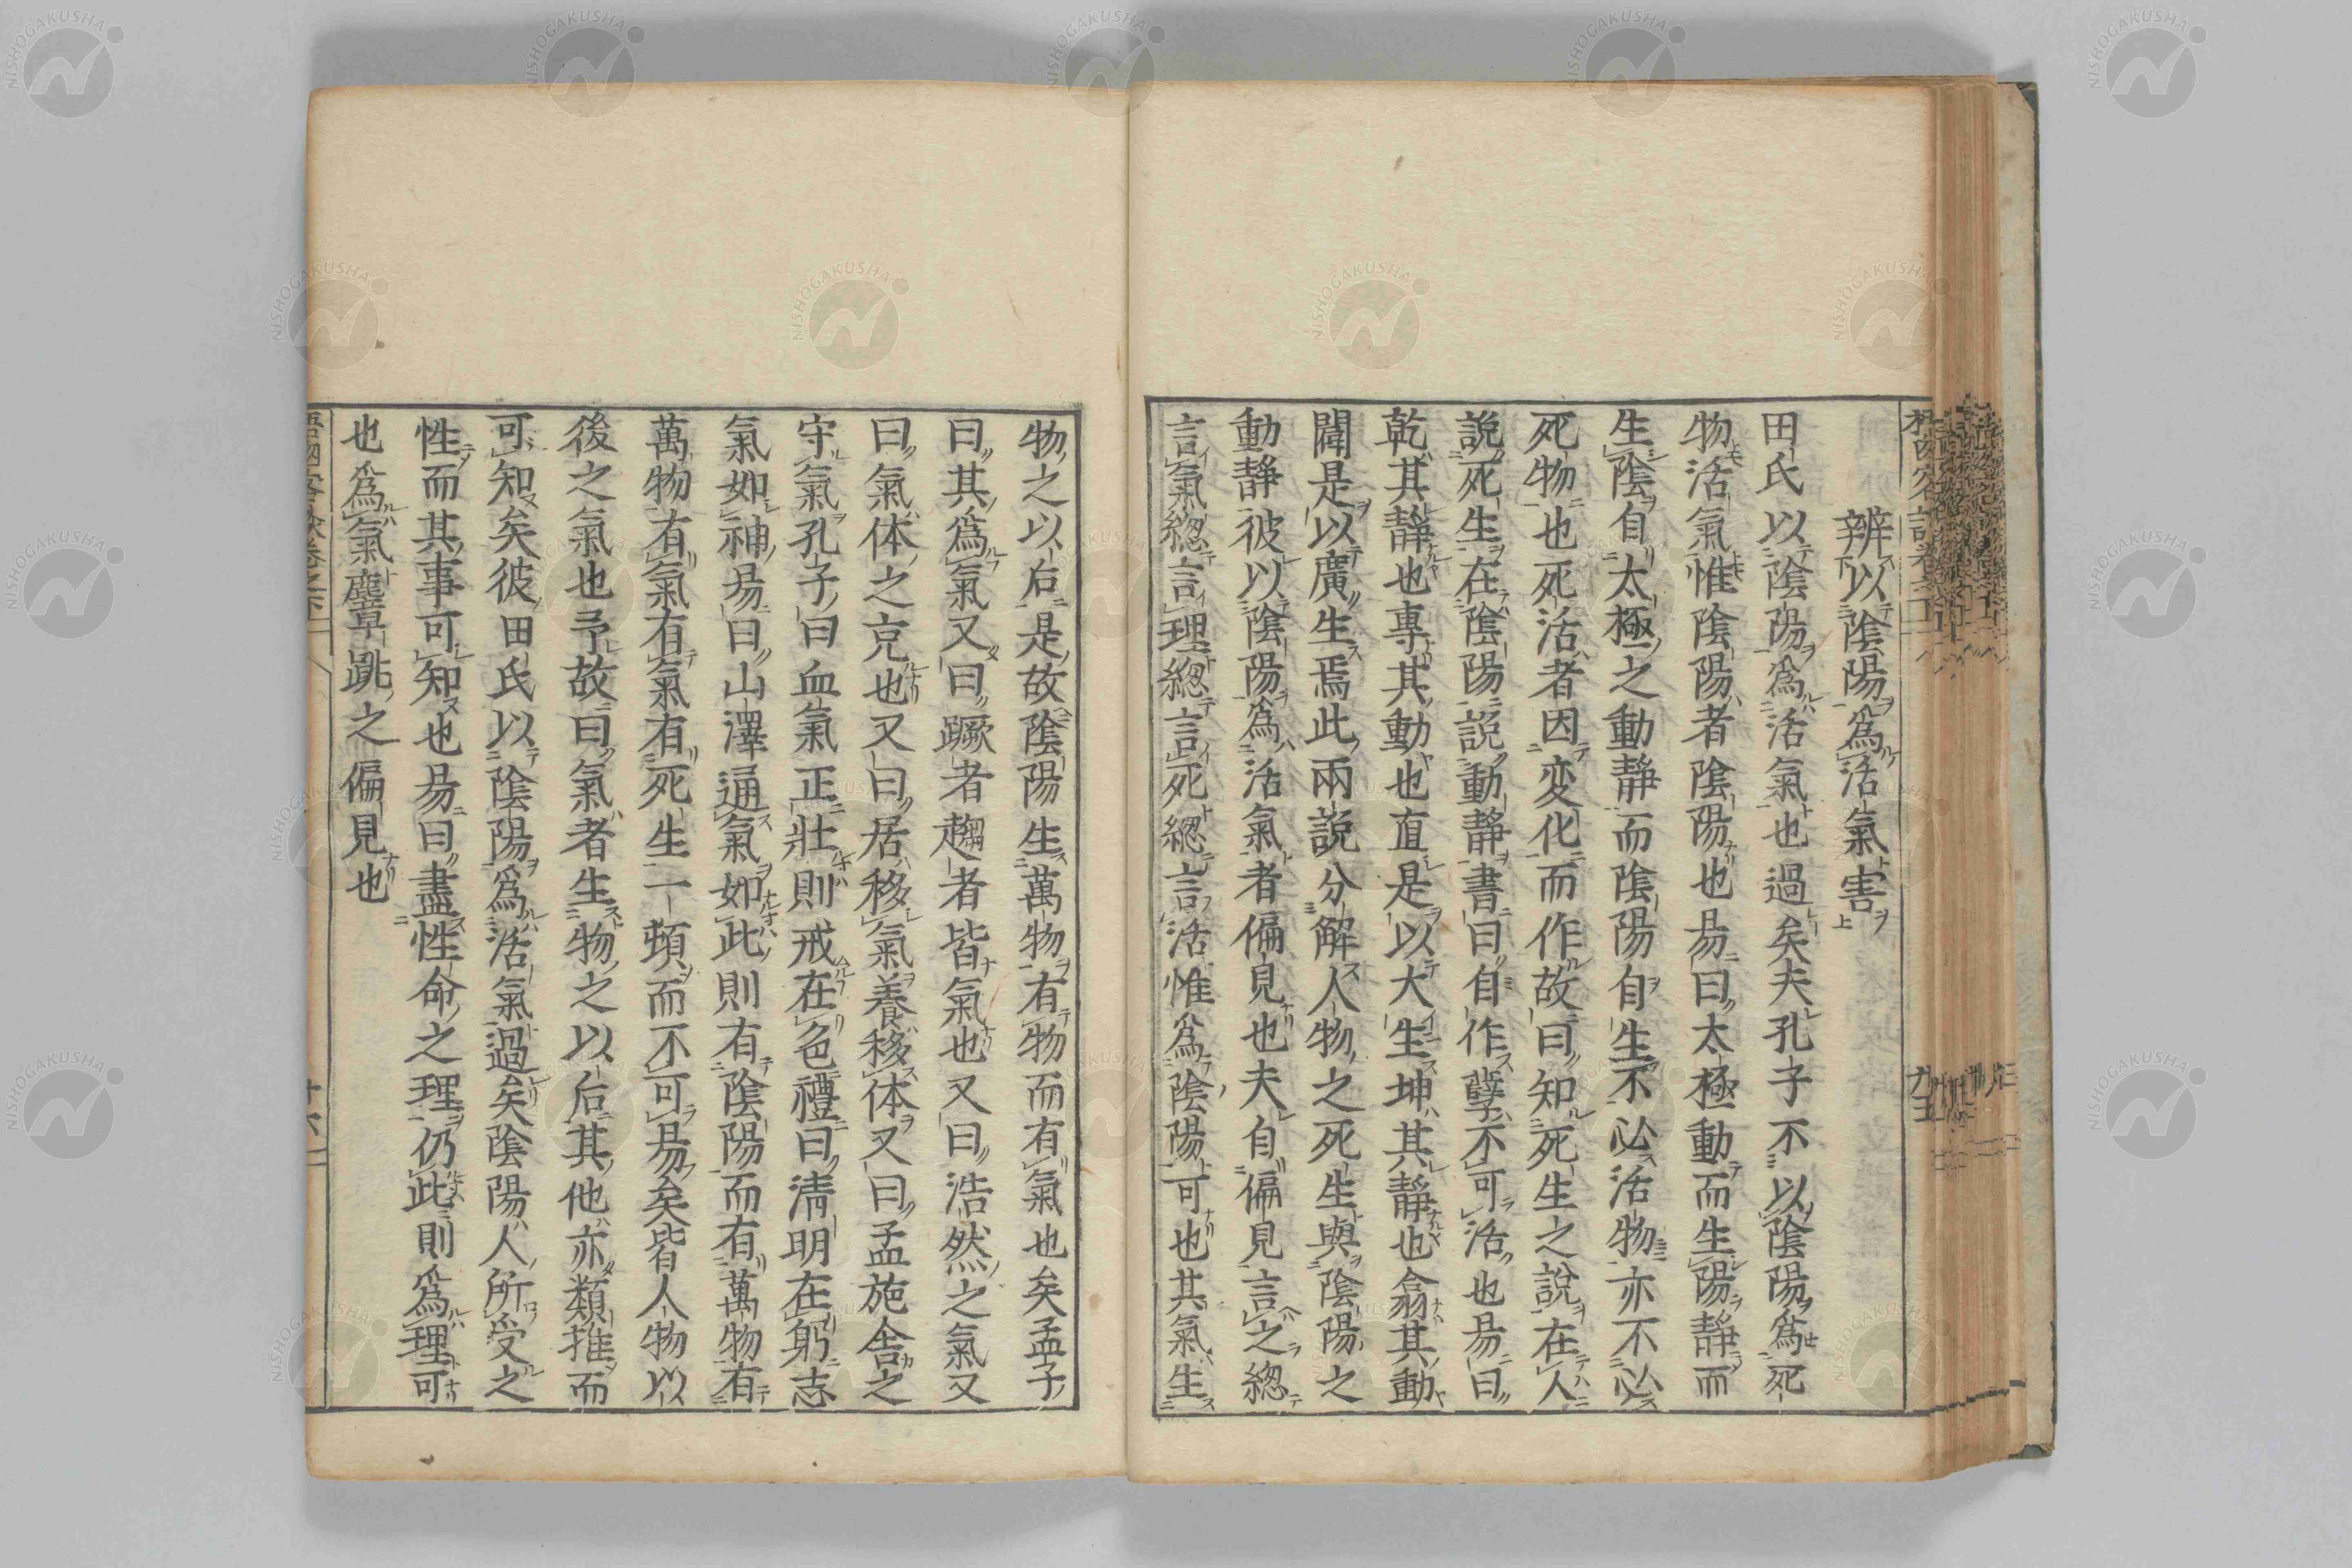 辨以陰陽爲活氣害
田氏以陰陽爲活氣也過矣夫孔子不以陰陽爲死
物活氣惟陰陽者陰陽也易曰太極動而生陽靜而
生陰自太極之動靜而陰陽自生不必活物亦不必
死物也死活者因変化而作故曰知死生之說在人
說死生在陰陽說動靜書曰自作孽不可活也易曰
乾其靜也專其動也直是以大生坤其靜也翕其動
闢是以廣生焉此兩說分解人物之死生與陰陽之
動靜彼以陰陽爲活氣者偏見也夫自偏見言之緫
言氣緫言理緫言死緫言活惟爲陰陽可也其氣生
物之以后是故陰陽生萬物有物而有氣也矣孟子
曰其爲氣又曰蹶者趨者皆氣也又曰浩然之氣又
曰氣体之充也又曰居移氣養移体又曰孟施舍之
守氣孔子曰血氣正壯則戒在色禮曰清明在躬志
氣如神易曰山澤通氣如此則有陰陽而有萬物有
萬物有氣有氣有死生一頓而不可易矣皆人物以
後之氣也予故曰氣者生物之以后其他亦類推而
可知矣彼田氏以陰陽爲活氣過矣陰陽人所受之
性而其事可知也易曰盡性命之理仍此則爲理可
也爲氣塵芥跳之偏見也
十六